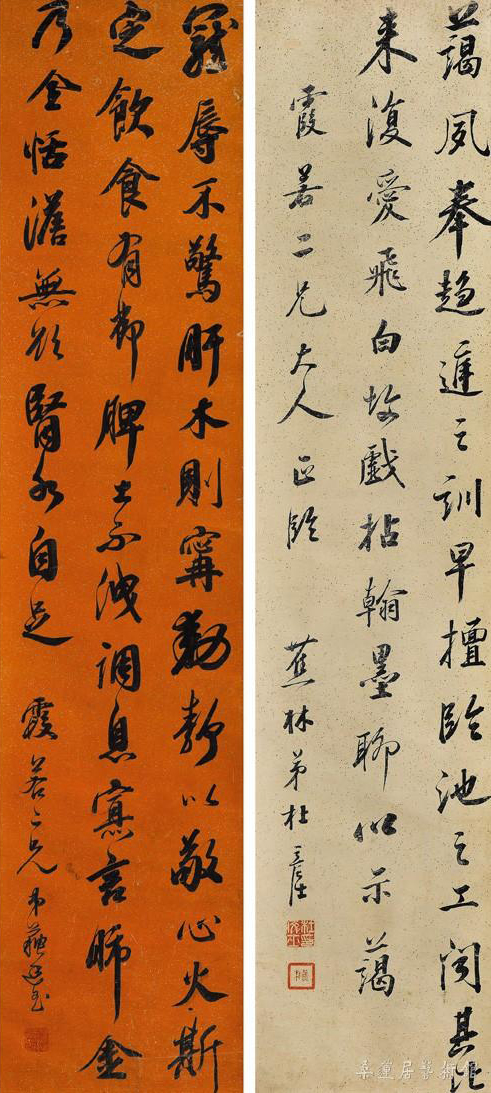 藹夙奉趨進之訓早擅臨池之工閱其比
来復愛飛白故戲拈翰墨聊以示藹
霞若二兄大人正臨 蕉林弟杜
寵辱不驚肝木則寧動靜以敬心火斯
定飲食有節脾土不洩調息寡言肺金
乃全恬澹無欲腎水自足 霞若二兄 弟蘇廷玉
桑蓮居藝術館